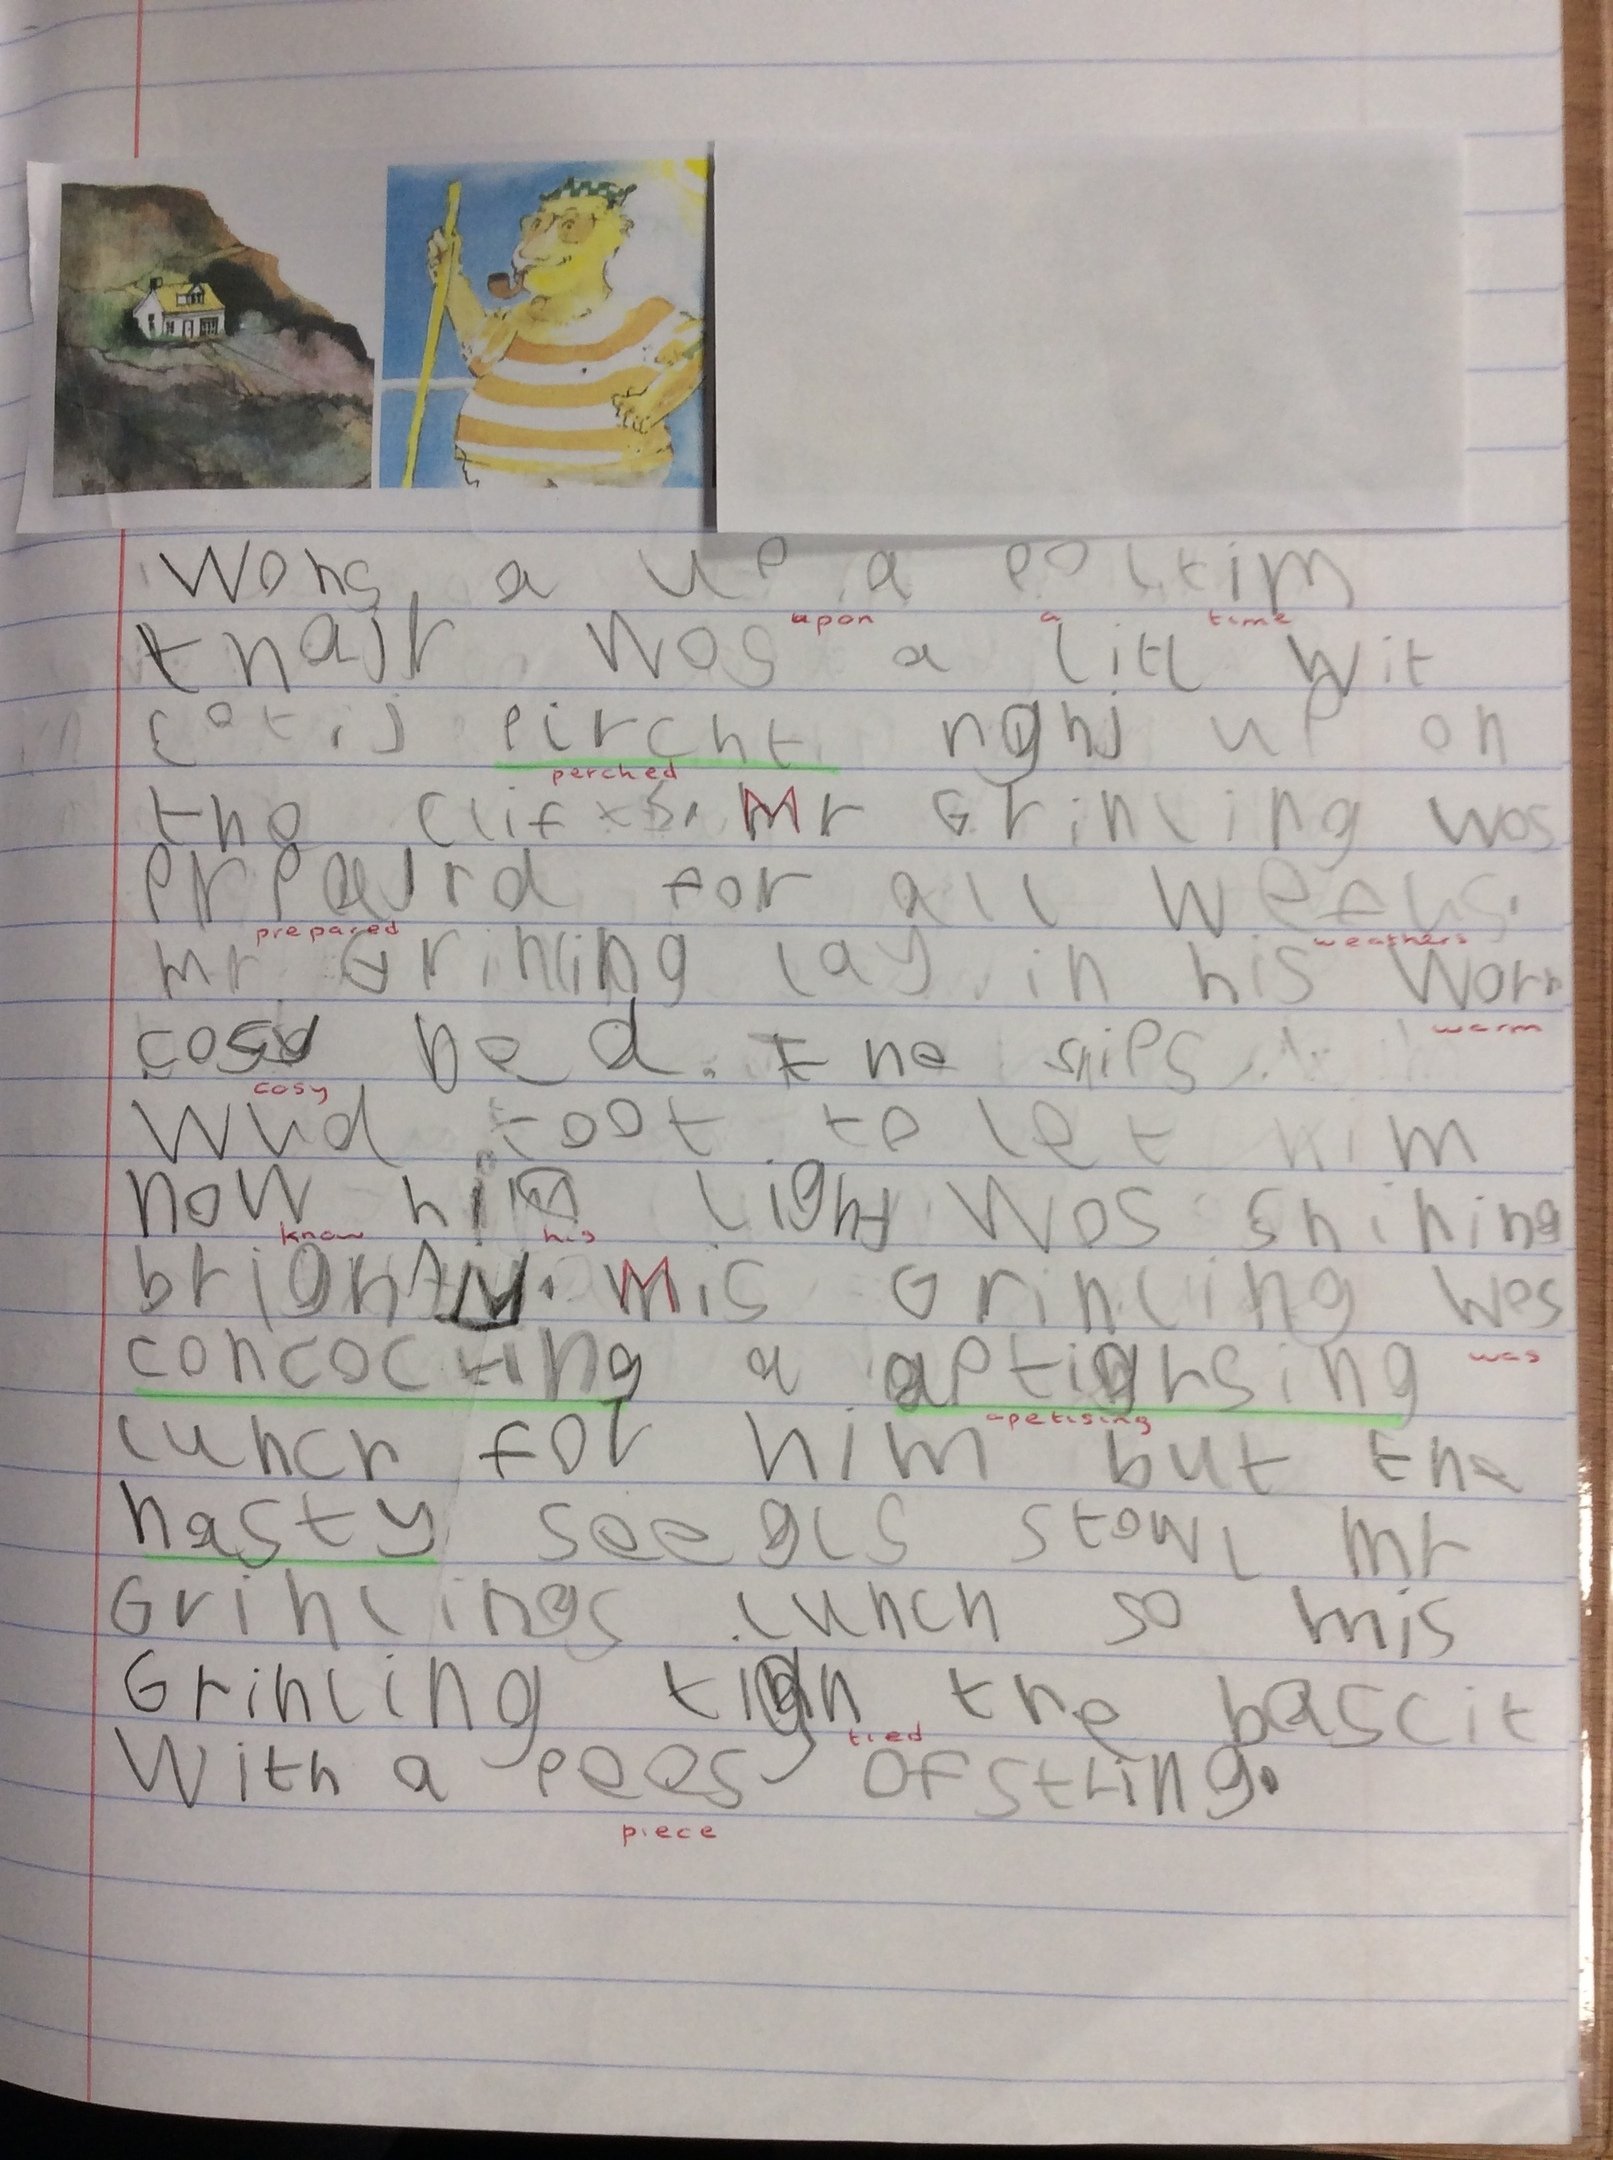 Wons a up a pon tim
upon a time
thair wos a litl wit
cotij pircht right up on
perched
the clifs. Mr Grinling wos
prpaird for all wethus.
prepared weathers
mr Grinling lay in his worm
warm
cosy bed. the ships
cosy
wud toot to let him
now his light wos shining
know his
brightly. Mis Grinling wos
concocting a aptighsing was
apetising
lunch for him but the
nasty seegls stowl mr
Grinlings lunch so mis
Grinling tigh the bascit
tied
With a pees of string.
piece